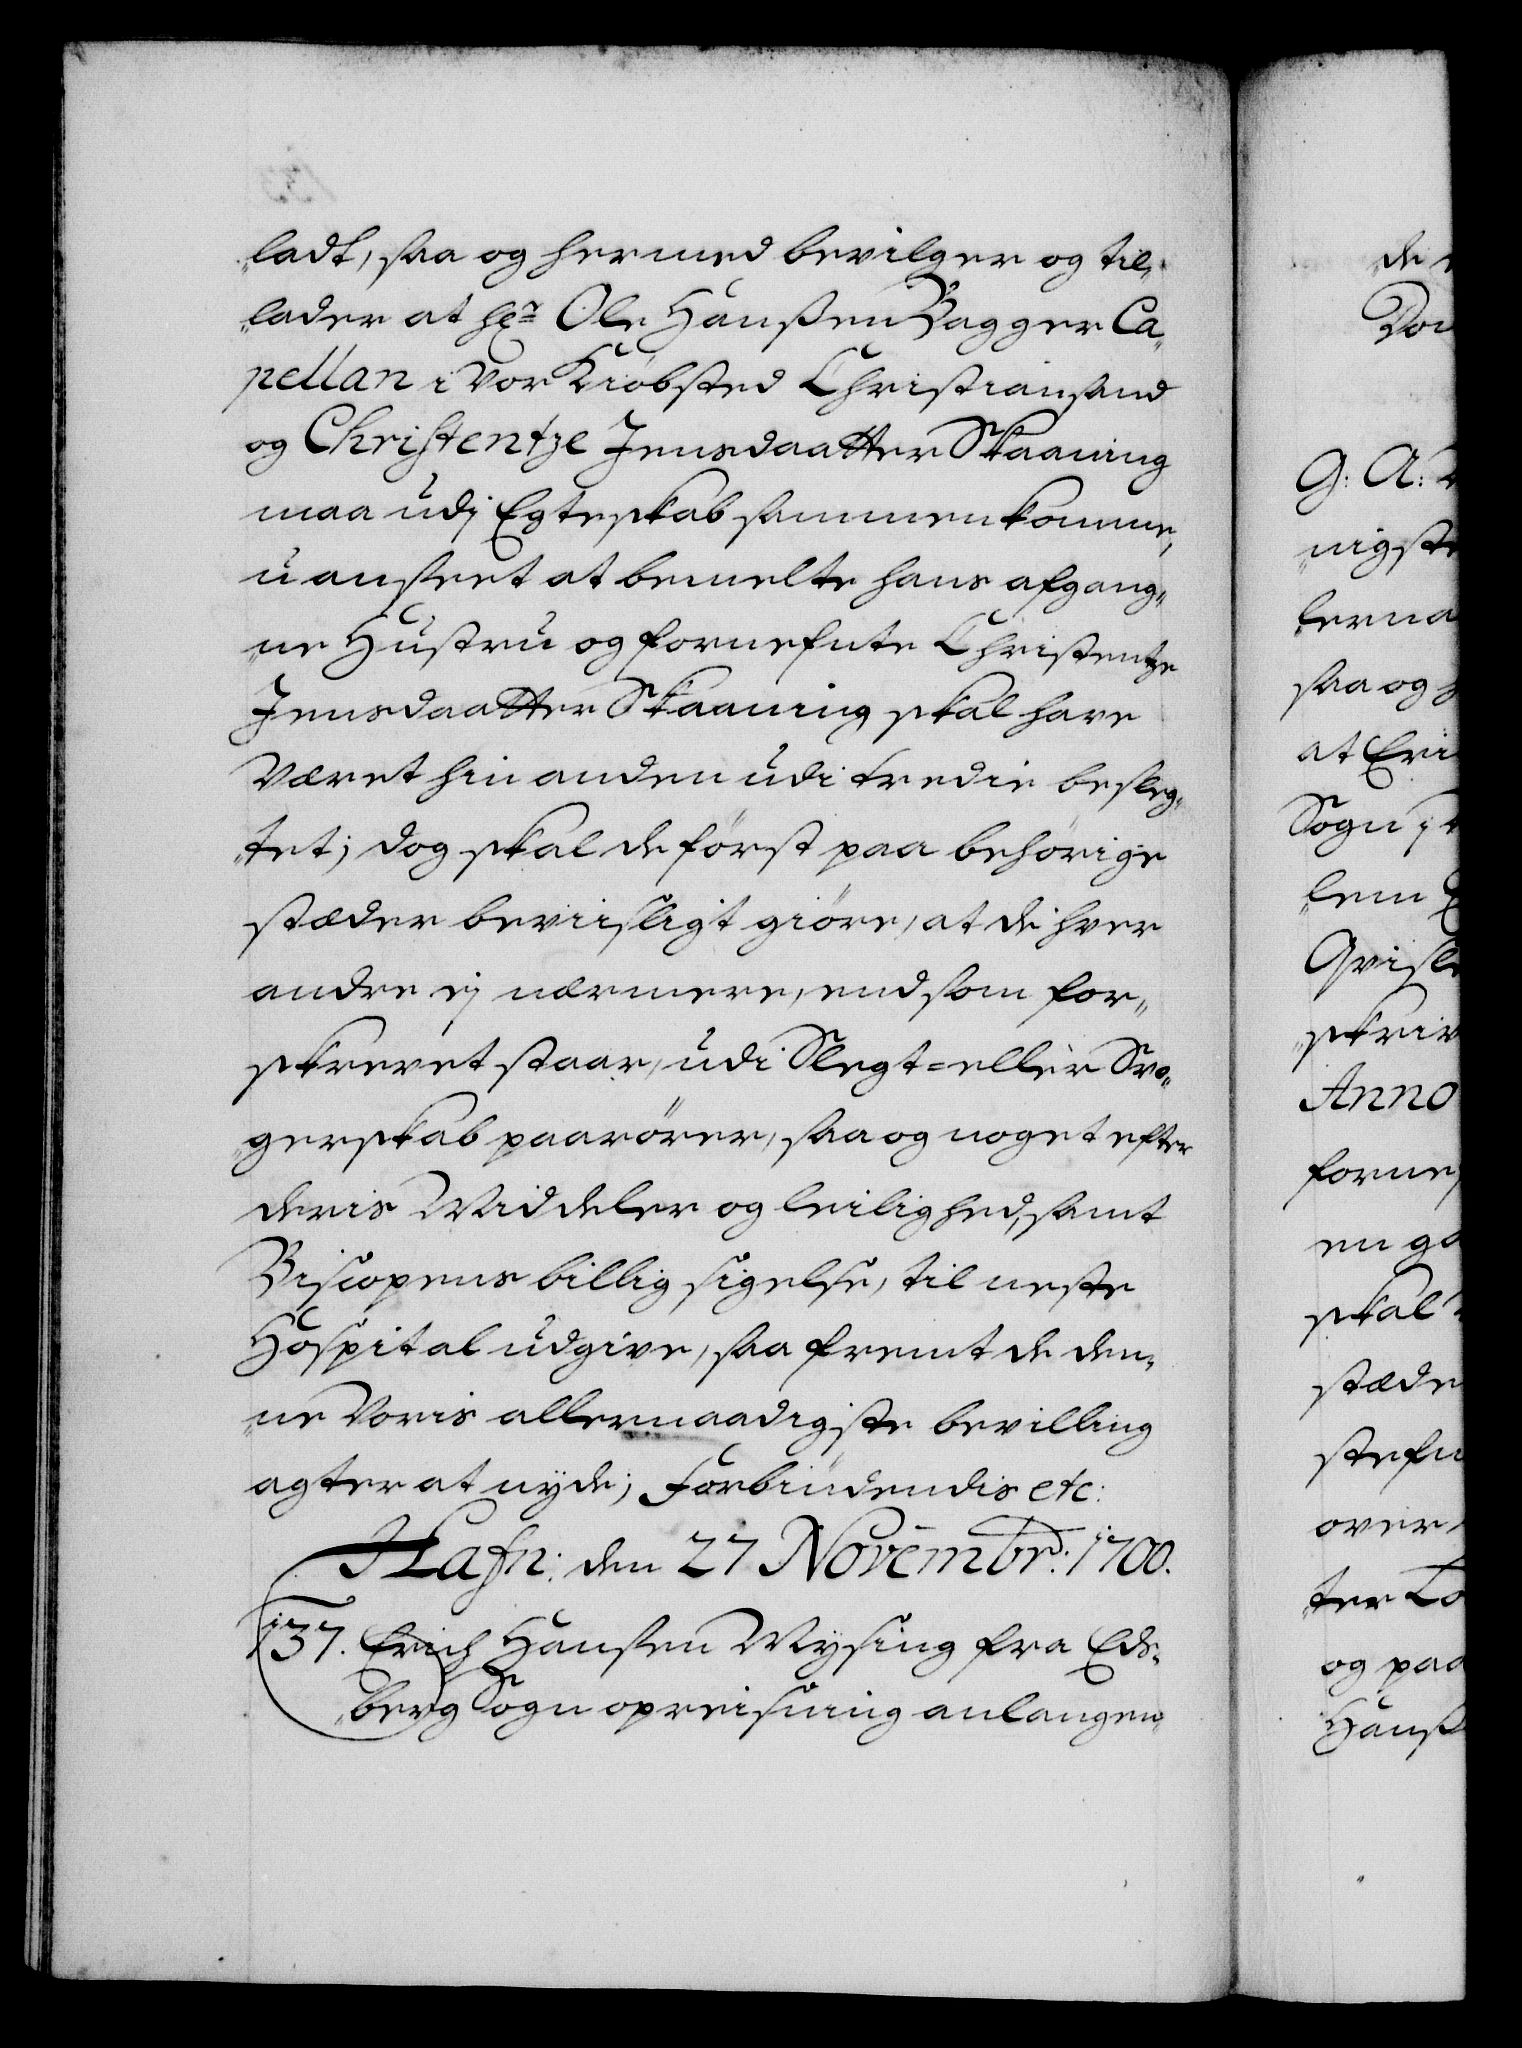 ladt, saa og hermed bevilger og til„
„lader at hr: Ole Hanßen Bagger Ca„
pellan i Vor Kiöbsted Christiansand
og Christentze Jensdaatter Skaaning
maa udj Egteskab sammenkomme,
uanseet at bemelte hans afgang„
„ne Hustru og fornefnte Christentze
Jensdaatter Skaaning skal have
Været hin anden udi tredie besleg„
„tet; dog skal de först paa behörige
stæder beviisligt giöre, at de hver
andre ej nærmere, end som for„
skrevet staar, udi Slegt= eller Svo„
„gerskab paarörer, saa og noget efter
deris Middeler og leilighed, samt
Biscopens billig sigelse, til neste
Hospital udgive, saa fremt de den„
„ne Voris allernaadigste bevilling
agter at nyde; Forbiudendis etc:
Hafn: den 27 Novembr: 1700.
137. Erich Hansen Mysing fra Eds„
„berg Sogn opreisning anlangen„
de
G: A: V
nigste
lerna
saa og
at Eri
Sogn i
lem
skriv
Anno
forne
en ga
skal
stæde
stefn
over
ter To
og paa
Hanß